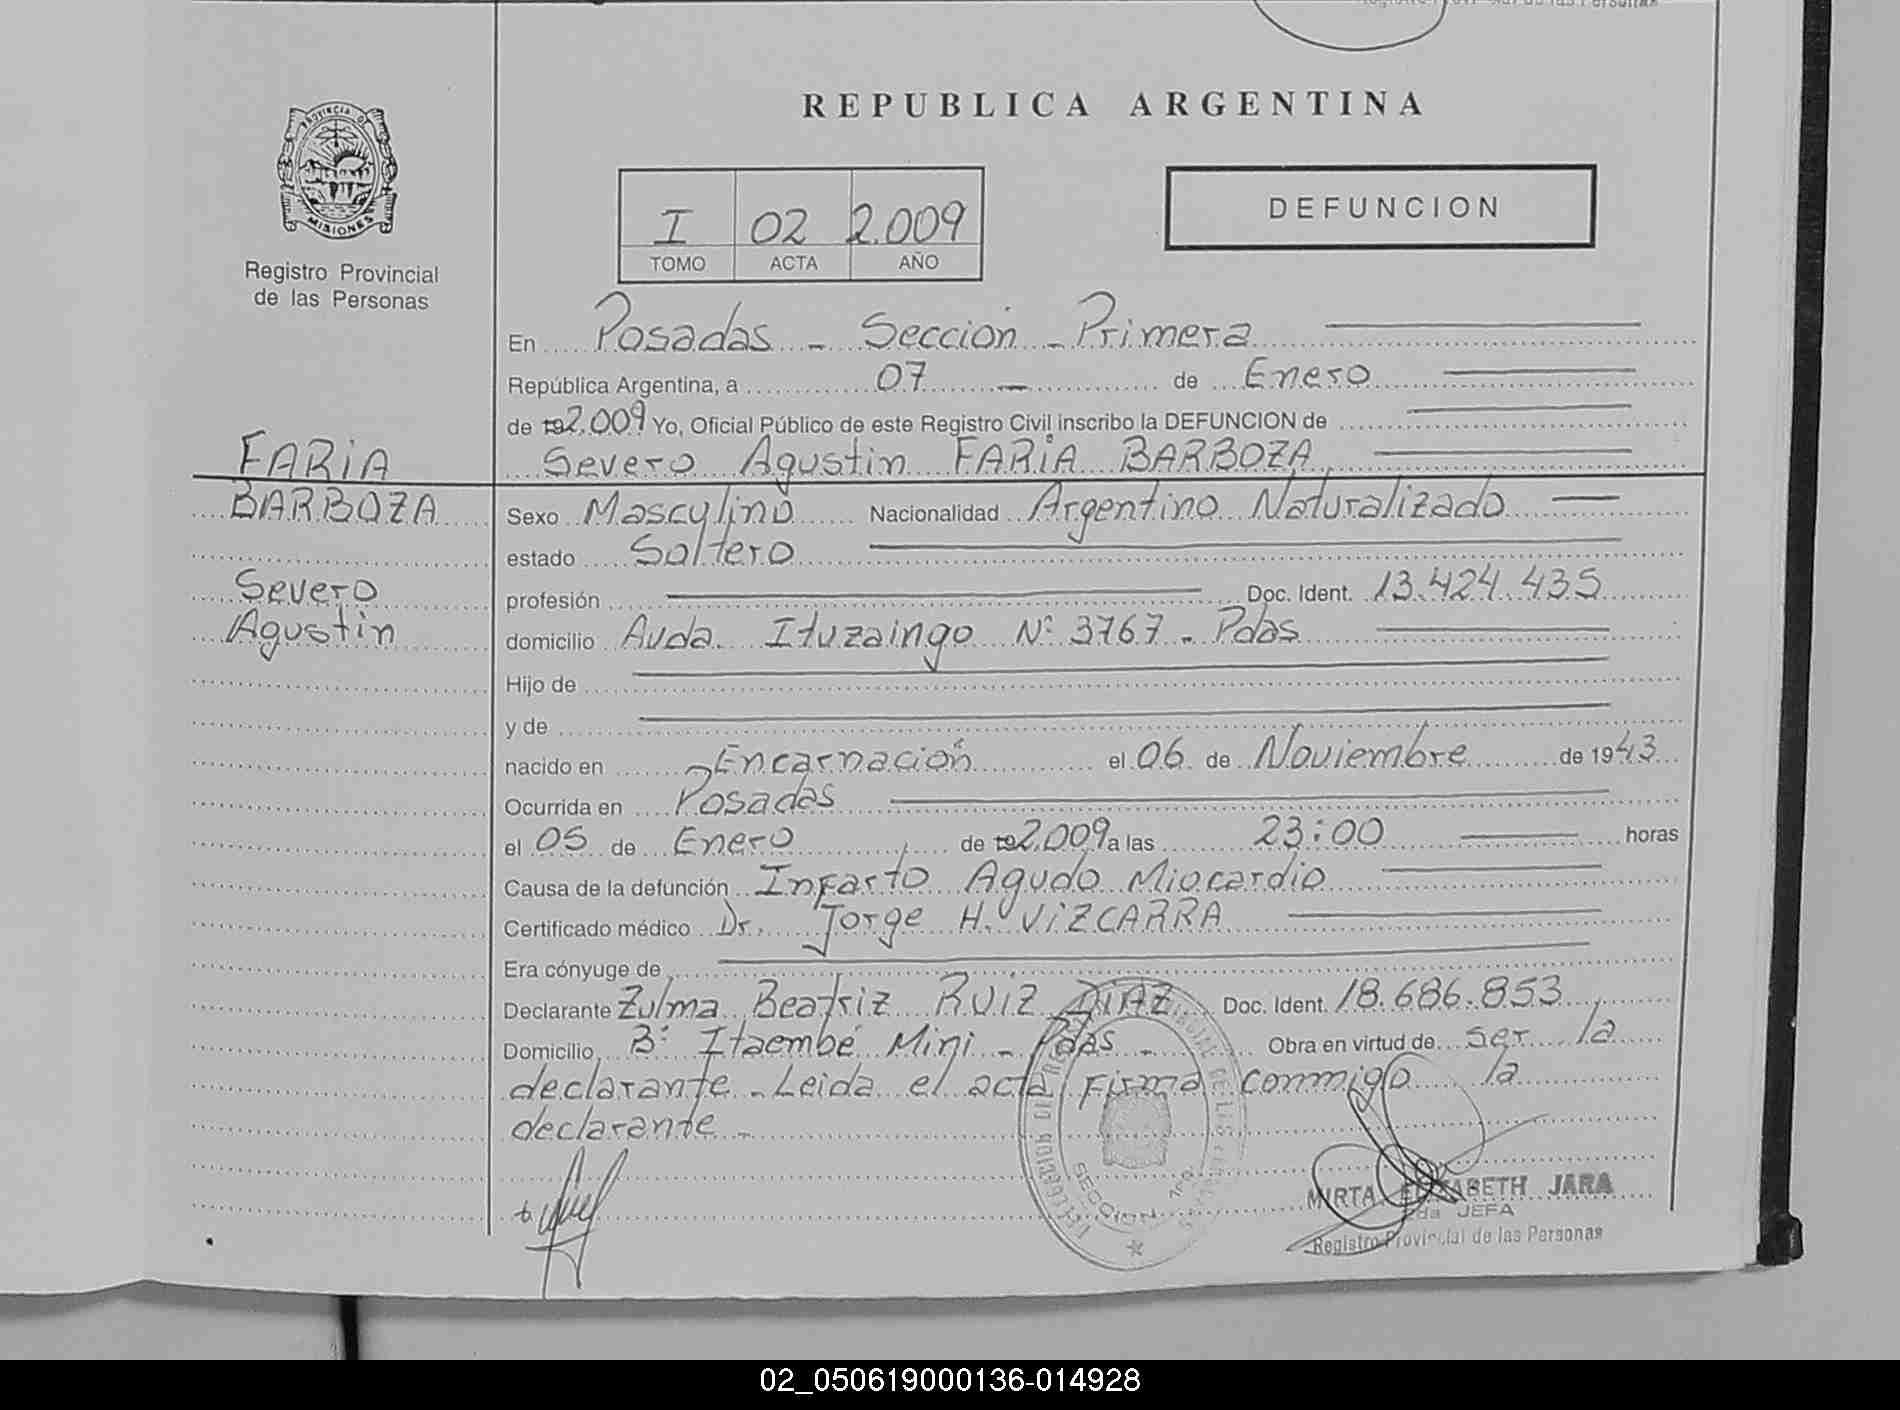 REPUBLICA ARGENTINA
PROVINCIA DE
MISIONES
Registro Provincial
de las Personas
I 02 2.009
TOMO ACTA AÑO
DEFUNCION
En Posadas - Sección - Primera
República Argentina, a 07 - de Enero
de 19 2.009 Yo, Oficial Público de este Registro Civil inscribo la DEFUNCION de
Severo Agustin FARIA BARBOZA
FARIA
BARBOZA
Severo
Agustin
Sexo Masculino Nacionalidad Argentino Naturalizado
estado Soltero
profesión Doc. Ident. 13.424.435
domicilio Avda. Ituzaingo N° 3767 - Pdas
Hijo de
y de
nacido en Encarnación el 06 de Noviembre de 1943
Ocurrida en Posadas
el 05 de Enero de 19 2.009 a las 23:00 horas
Causa de la defunción Infarto Agudo Miocardio
Certificado médico Dr. Jorge H. VIZCARRA
Era cónyuge de
Declarante Zulma Beatriz RUIZ DIAZ Doc. Ident. 18.686.853
Domicilio B° Itaembé Mini - Pdas - Obra en virtud de ser la
declarante - Leida el acta firma conmigo la
declarante -
MIRTA ELIZABETH JARA
JEFA
Registro Provincial de las Personas
02_050619000136-014928